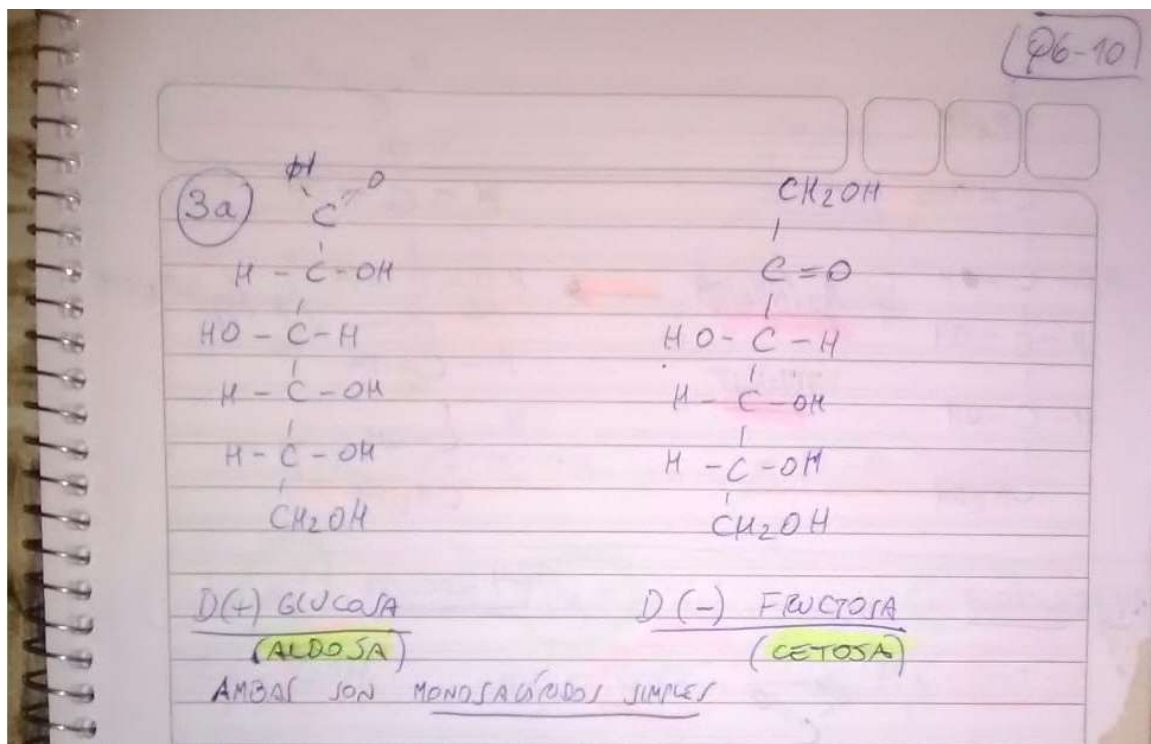 Q6-10
3a
H O
C
H - C - OH
HO - C - H
H - C - OH
H - C - OH
CH2OH
D(+) GLUCOSA
(ALDOSA)
CH2OH
C = O
HO - C - H
H - C - OH
H - C - OH
CH2OH
D (-) FRUCTOSA
(CETOSA)
AMBAS SON MONOSACÁRIDOS SIMPLES